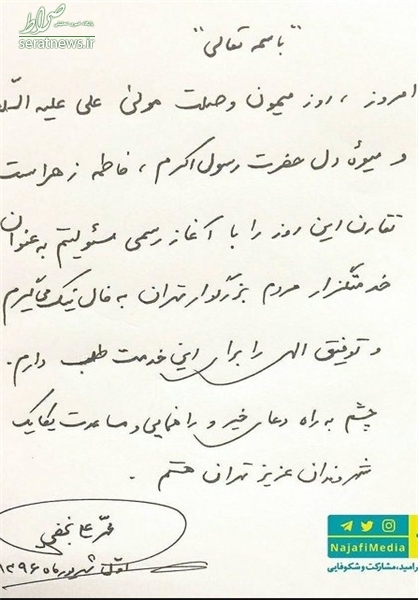 صراط
seratnews.ir
"باسمه تعالی"
امروز، روز میمون وصلت مولی علی علیه السلا
و میوهٔ دل حضرت رسول اکرم، فاطمه زهراست
تقارن این روز را با آغاز رسمی مسئولیتم به عنوان
خدمتگزار مردم بزرگوار تهران به فال نیک می‌گیرم
و توفیق الهی را برای این خدمت طلب دارم.
چشم به راه دعای خیر و راهنمایی و مساعدت یکایک
شهروندان عزیز تهران هستم.
محمدعلی نجفی
اول شهریورماه ۱۳۹۶
NajafiMedia
امید، مشارکت و شکوفایی